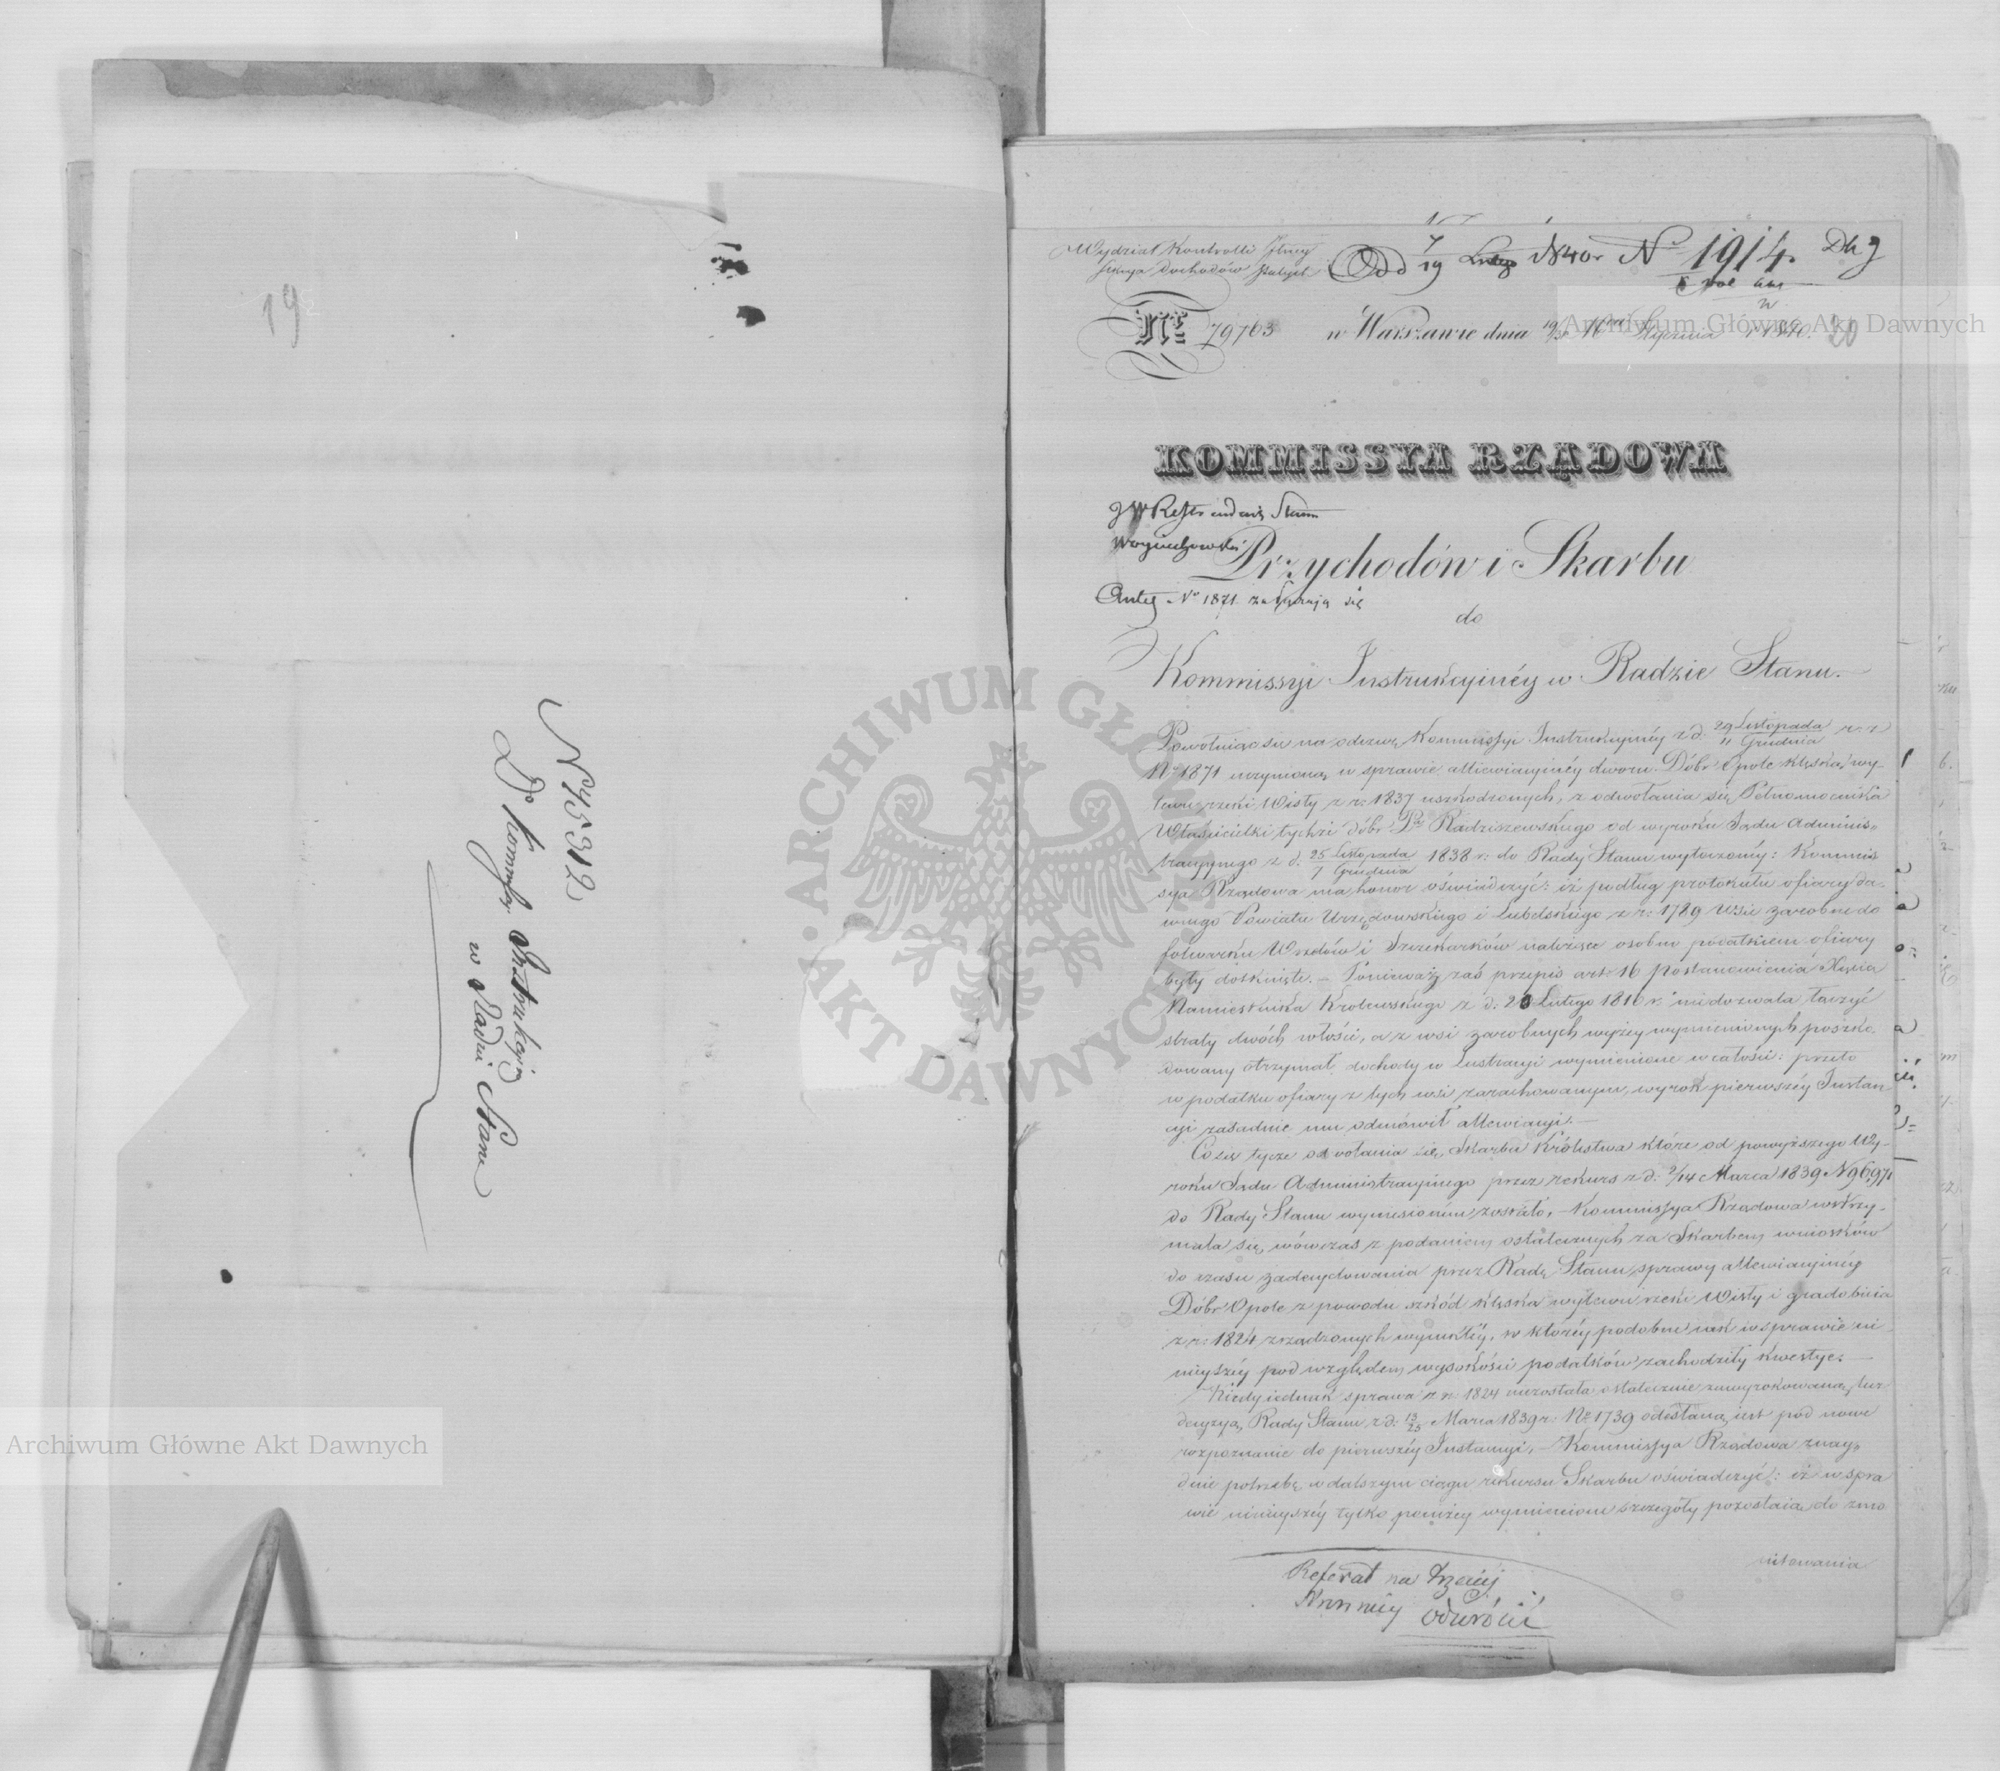 19
N 45312
Do Kommissyi Instrukcyjnej
w Radzie Stanu
Wydział Kontrolli
Sekcya Dochodów
Odd 7/19 Lutego 1840 r. No 1914.
No 79763 w Warszawie dnia Stycznia 1840. 20
KOMMISSYA RZĄDOWA
Woyciechowski
Przychodów i Skarbu
Anteq No 1871 załączają się
do
Kommissyi Instrukcyinéy w Radzie Stanu.
Powołuiąc się na odezwę Kommissyi Instrukcyinéy z d. 29 Listopada / 11 Grudnia r. z.
No 1871 uczynioną w sprawie allewiacyinéy dworu Dóbr Opole klęską wy-
lewu rzeki Wisły z r. 1837 uszkodzonych, z odwołania się Pełnomocnika
Właścicielki tychże dóbr Pa Radziszewskiego od wyroku Sądu Adminis-
tracyynego z d. 25 Listopada / 7 Grudnia 1838 r. do Rady Stanu wytoczonéy: Kommis
sya Rządowa ma honor oświadczyć: iż podług protokułu ofiary da-
wnego Powiatu Urzędowskiego i Lubelskiego z r. 1789 wsie zarobne do
folwarku Wrzelów i Szczekarków należące osobno podatkiem ofiary
były dotknięte. – Ponieważ zaś przepis art. 16 Postanowienia Xięcia
Namiestnika Królewskiego z d. Lutego 1816 r. niedozwala łączyć
straty dwóch włości, a z wsi zarobnych wyżey wymienionych poszko-
dowany otrzymał dochody w Lustracyi wymienione w całości: przeto
w podatku ofiary z tych wsi zarachowanym, wyrok pierwszéy Instan-
cyi zasadnie mu odmówił allewiacyi. –
Co się tycze odwołania się Skarbu Królestwa które od powyższego Wy-
roku Sądu Administracyinego przez rekurs z d. 2/14 Marca 1839 N 96,971
do Rady Stanu wyniesionem zostało, – Kommissya Rządowa wstrzy-
mała się wówczas z podaniem ostatecznych za Skarbem wniosków
do czasu zadecydowania przez Radę Stanu sprawy allewiacyinéy
Dóbr Opole z powodu szkód klęską wylewu rzeki Wisły i gradobicia
z r. 1824 zrządzonych wynikłéy, w któréy podobnie iak w sprawie ni-
nieyszéy pod względem wysokości podatków zachodziły kwestye. –
Kiedy iednak sprawa z r. 1824 niezostała ostatecznie zawyrokowaną, lecz
decyzyą Rady Stanu z d. 13/25 Marca 1839 r. No 1739 odesłaną iest pod nowe
rozpoznanie do pierwszéy Instancyi, – Kommissya Rządowa znay-
duie potrzebę w dalszym ciągu rekursu Skarbu oświadczyć: iż w spra
wie ninieyszéy tylko poniżey wymienione szczegóły pozostaią do zmo
nitowania
Referat na
odwrócić
Archiwum Główne Akt Dawnych
Archiwum Główne Akt Dawnych
ARCHIWUM GŁÓWNE AKT DAWNYCH